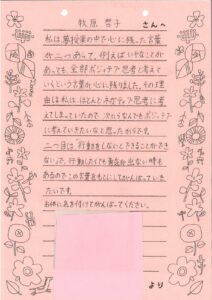 牧原 哲子 さんへ
私は、夢授業の中で心に残った言葉
が二つあって、例えばいやなことが
あっても、全部ポジティブ思考と考えて
いくという言葉が心に残りました。その理
由は私は、ほとんどネガティブ思考に考
えてしまっていたので、これからなんでもポジティブ
に考えていきたいなと思ったからです。
二つ目は、行動をしないとできることができ
ないって、行動したくても勇気が出ない時も
あるのでこの言葉をもとにしてがんばっていき
たいです。
お体に気を付けてがんばってください。
より